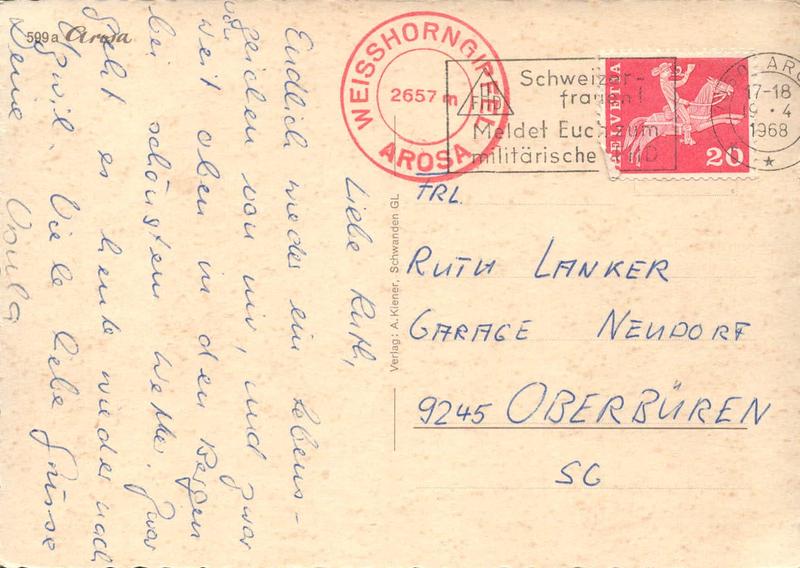 599a Arosa
WEISSHORNGIPFEL
2657 m
AROSA
Schweizer-
frauen!
FHD
Meldet Euch zum
militärische FHD
17-18
19.4
1968
HELVETIA
20
Liebe Ruth,
Endlich wieder ein Lebens-
zeichen von mir, und zwar von
weit oben in den Bergen
bei schönstem Wetter. Zwar
geht es heute wieder nach
Uzwil. Viele liebe Grüsse
Deine Ursula
Verlag: A. Kiener, Schwanden GL
FRL.
RUTH LANKER
GARAGE NEUDORF
9245 OBERBÜREN
SG